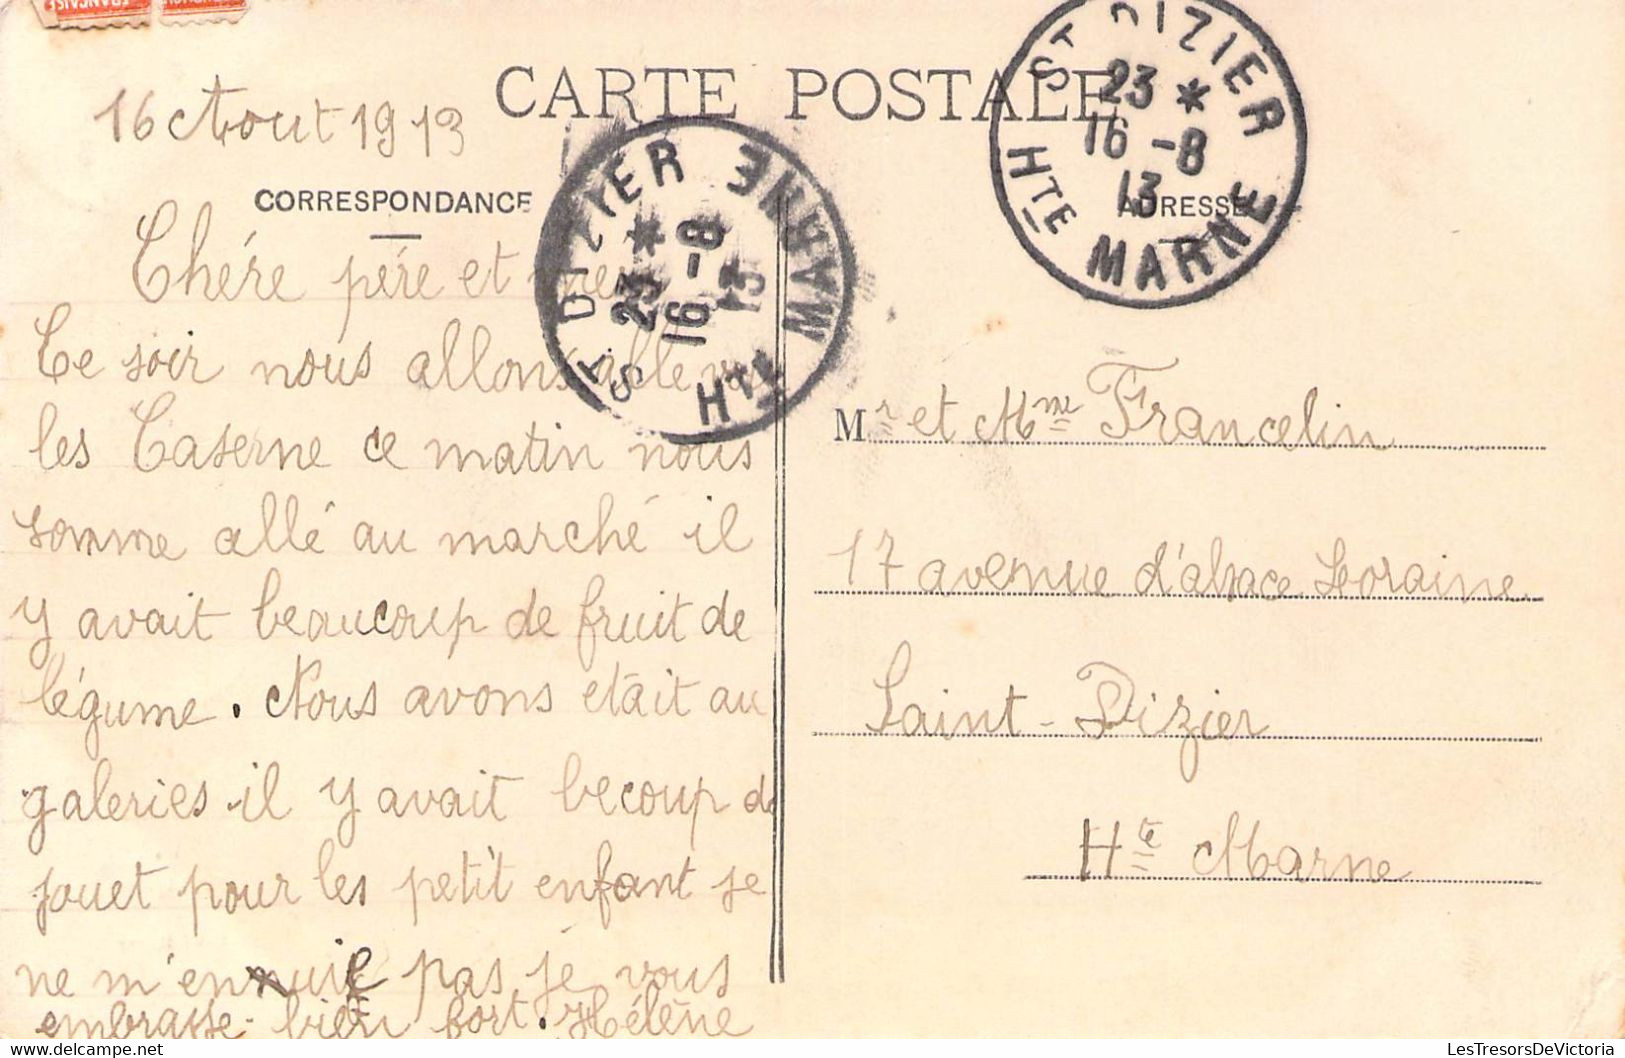 FRANÇAISE
16 Aout 1913
CARTE POSTALE
CORRESPONDANCE
Chére pére et
Ce soir nous allons
les Caserne ce matin nous
somme allé au marché il
y avait beaucoup de fruit de
légume. Nous avons était au
galeries il y avait becoup de
jouet pour les petit enfant je
ne m'ennuie pas je vous
embrasse bien fort. Hélène
ST DIZIER
23 *
16 - 8
13
HTE MARNE
ST DIZIER
23 *
16 - 8
13
HTE MARNE
ADRESSE
Mr et Mme Francelin
17 avenue d'alsace Loraine
Saint-Dizier
Hte Marne
LesTresorsDeVictoria